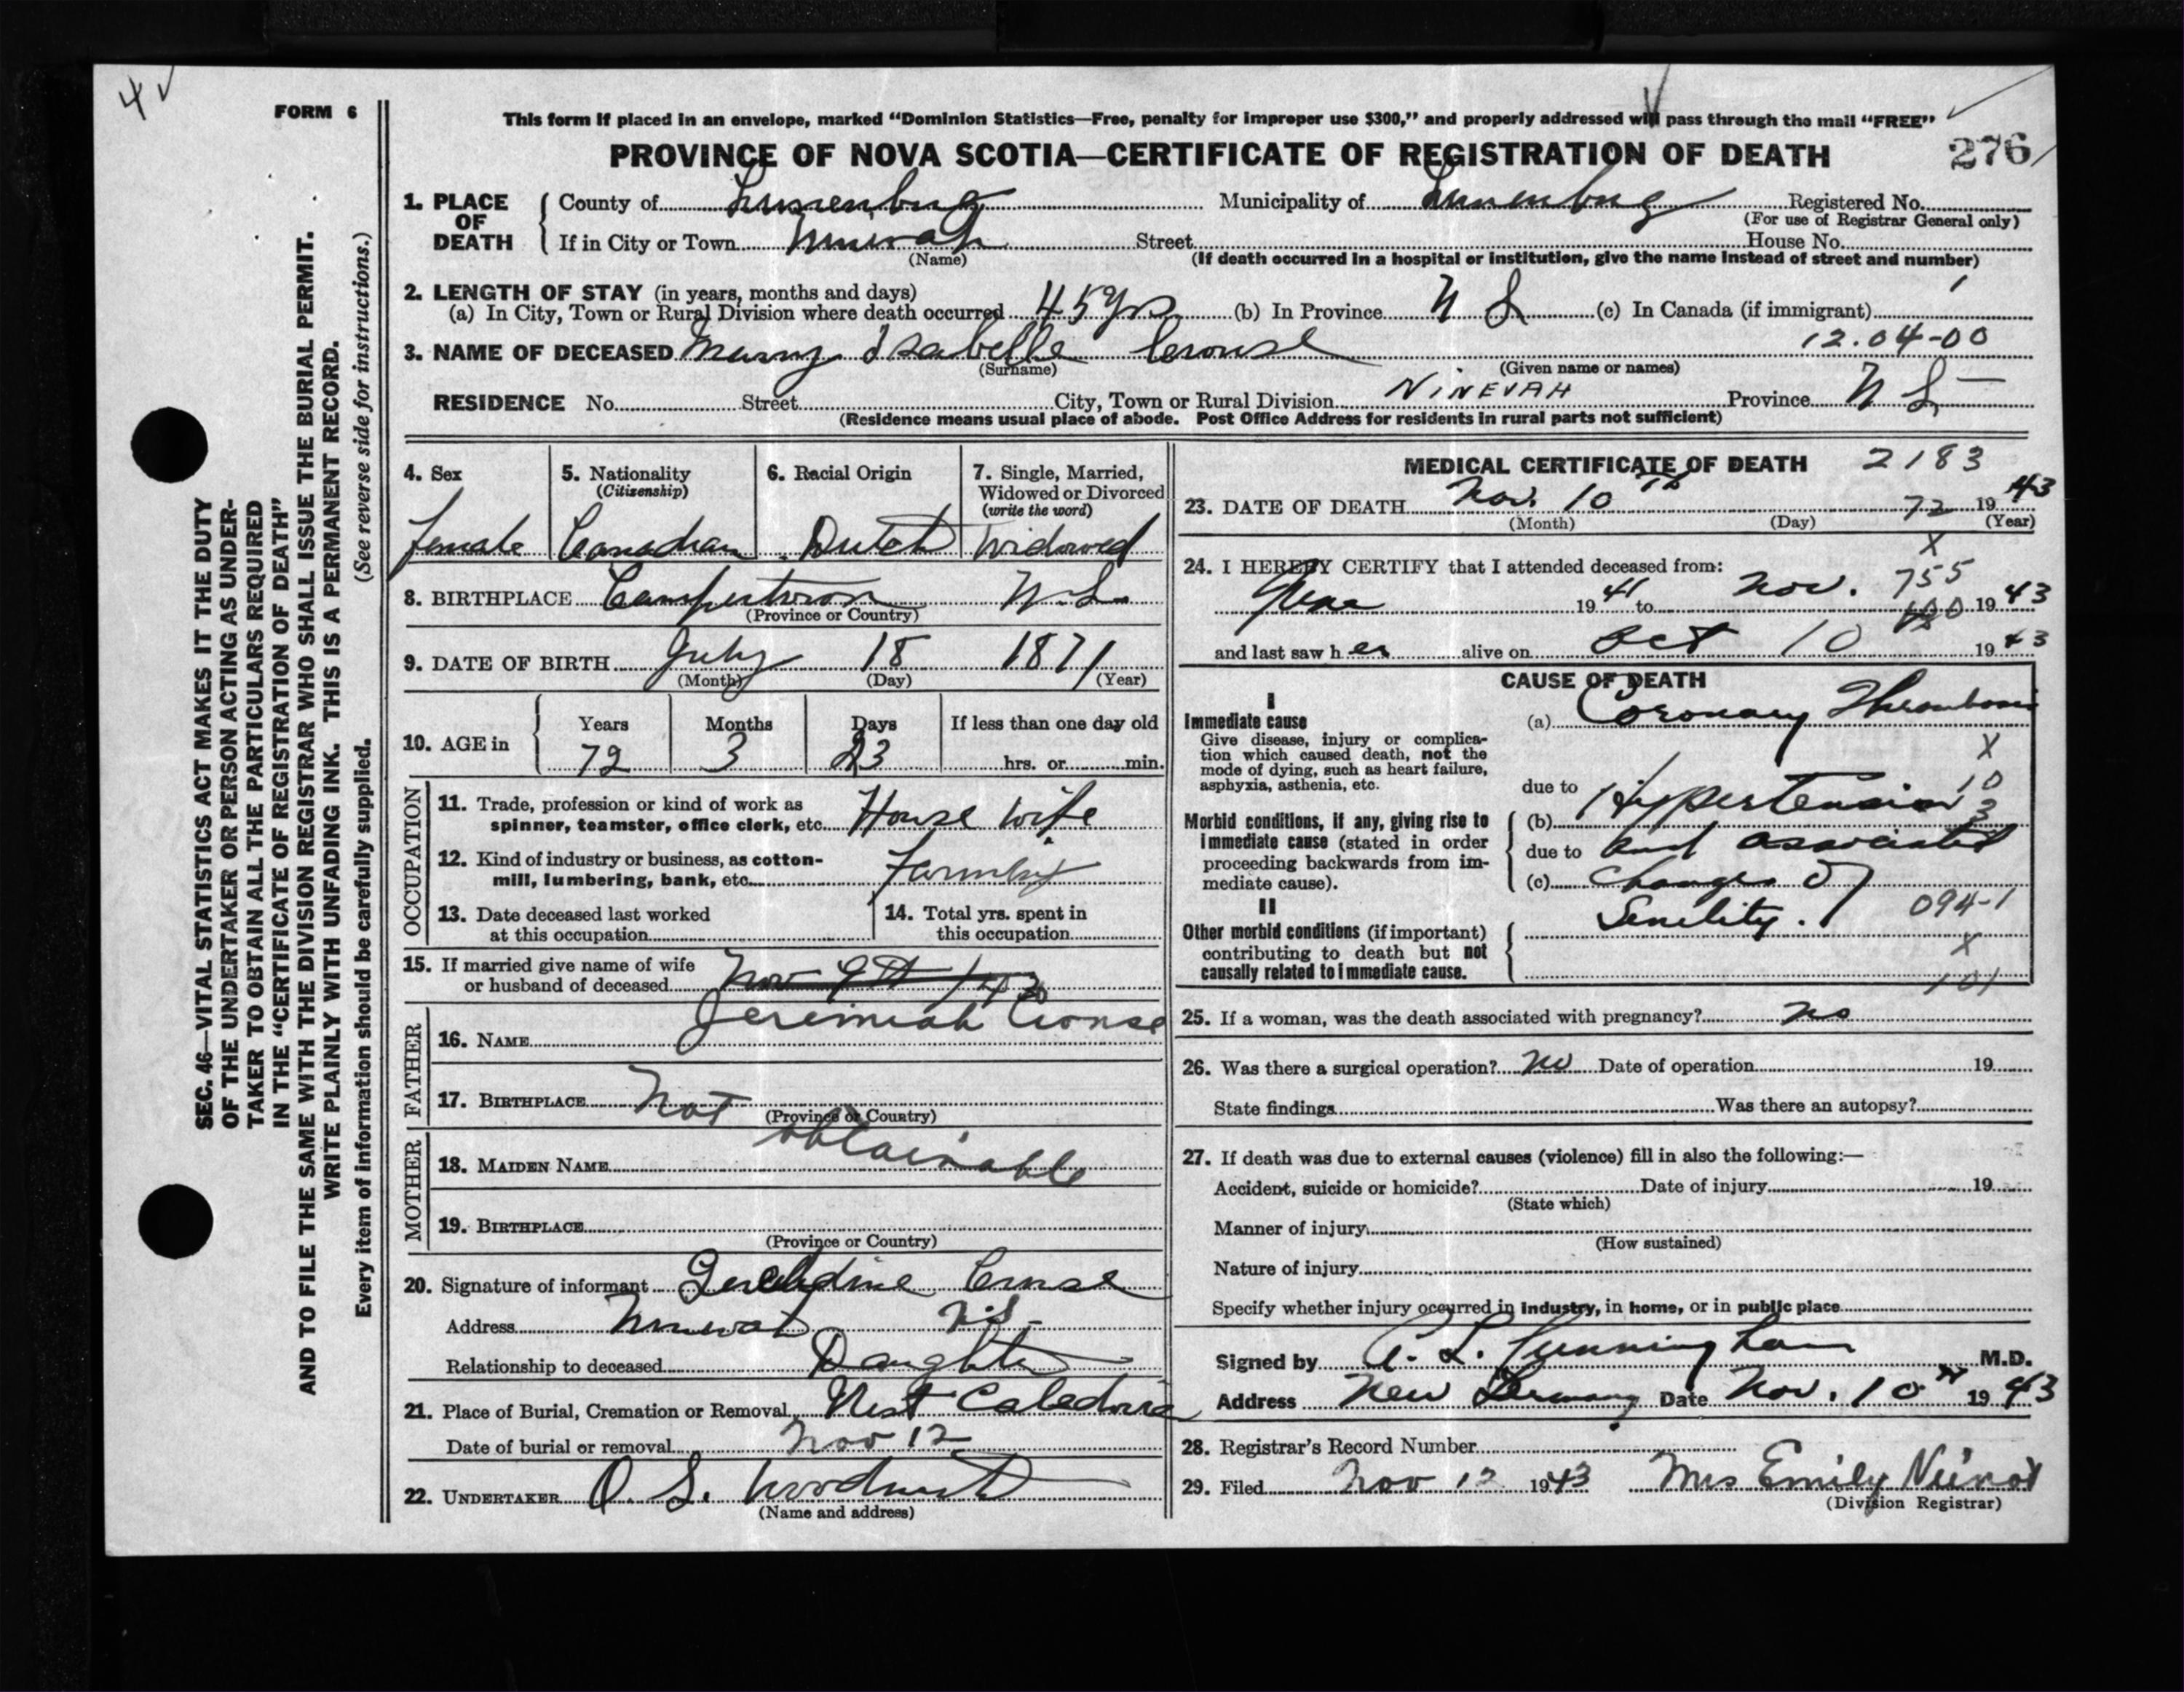 4 ✓
FORM 6
This form if placed in an envelope, marked "Dominion Statistics—Free, penalty for improper use $300," and properly addressed will pass through the mail "FREE"
PROVINCE OF NOVA SCOTIA—CERTIFICATE OF REGISTRATION OF DEATH 276
1. PLACE OF DEATH County of Lunenburg Municipality of Lunenburg Registered No.
(For use of Registrar General only)
If in City or Town Ninevah Street House No.
(Name) (If death occurred in a hospital or institution, give the name instead of street and number)
2. LENGTH OF STAY (in years, months and days)
(a) In City, Town or Rural Division where death occurred 45 yrs (b) In Province N S (c) In Canada (if immigrant)
3. NAME OF DECEASED Marry Isabelle Crouse 12.04-00
(Surname) (Given name or names)
RESIDENCE No. Street City, Town or Rural Division NINEVAH Province N S
(Residence means usual place of abode. Post Office Address for residents in rural parts not sufficient)
4. Sex
Female
5. Nationality
(Citizenship)
Canadian
6. Racial Origin
Dutch
7. Single, Married,
Widowed or Divorced
(write the word)
Widowed
8. BIRTHPLACE Camperdown N.S.
(Province or Country)
9. DATE OF BIRTH July 18 1871
(Month) (Day) (Year)
10. AGE in Years Months Days If less than one day old
72 3 23 hrs. or min.
OCCUPATION
11. Trade, profession or kind of work as
spinner, teamster, office clerk, etc. House wife
12. Kind of industry or business, as cotton-
mill, lumbering, bank, etc.
13. Date deceased last worked
at this occupation
14. Total yrs. spent in
this occupation
15. If married give name of wife
or husband of deceased Nov 9th 143
Jeremiah Crouse
FATHER
16. NAME
17. BIRTHPLACE Not
(Province or Country)
obtainable
MOTHER
18. MAIDEN NAME
19. BIRTHPLACE
(Province or Country)
20. Signature of informant Geraldine Crouse
Address Ninevah N.S.
Relationship to deceased Daughter
21. Place of Burial, Cremation or Removal West Caledonia
Date of burial or removal Nov 12
22. UNDERTAKER O. S.
(Name and address)
MEDICAL CERTIFICATE OF DEATH 2183
23. DATE OF DEATH Nov. 10th 72 1943
(Month) (Day) (Year)
X
24. I HEREBY CERTIFY that I attended deceased from:
755
June 1941 to Nov. 1943
and last saw her alive on Oct 10 1943
CAUSE OF DEATH
I
Immediate cause
Give disease, injury or complica-
tion which caused death, not the
mode of dying, such as heart failure,
asphyxia, asthenia, etc.
(a) Coronary Thrombosis
X
10
3
due to
(b) Hypertension
Morbid conditions, if any, giving rise to
immediate cause (stated in order
proceeding backwards from im-
mediate cause).
due to and associated
(c) changes of
Senility. 094-1
X
101
II
Other morbid conditions (if important)
contributing to death but not
causally related to immediate cause.
25. If a woman, was the death associated with pregnancy? no
26. Was there a surgical operation? no Date of operation 19
State findings Was there an autopsy?
27. If death was due to external causes (violence) fill in also the following:—
Accident, suicide or homicide? Date of injury 19
(State which)
Manner of injury
(How sustained)
Nature of injury
Specify whether injury occurred in industry, in home, or in public place
Signed by C. L. Cunningham M.D.
Address New Germany Date Nov. 10th 1943
28. Registrar's Record Number
29. Filed Nov 12 1943 Mrs Emily
(Division Registrar)
SEC. 46—VITAL STATISTICS ACT MAKES IT THE DUTY
OF THE UNDERTAKER OR PERSON ACTING AS UNDER-
TAKER TO OBTAIN ALL THE PARTICULARS REQUIRED
IN THE "CERTIFICATE OF REGISTRATION OF DEATH"
AND TO FILE THE SAME WITH THE DIVISION REGISTRAR WHO SHALL ISSUE THE BURIAL PERMIT.
WRITE PLAINLY WITH UNFADING INK. THIS IS A PERMANENT RECORD.
Every item of information should be carefully supplied. (See reverse side for instructions.)